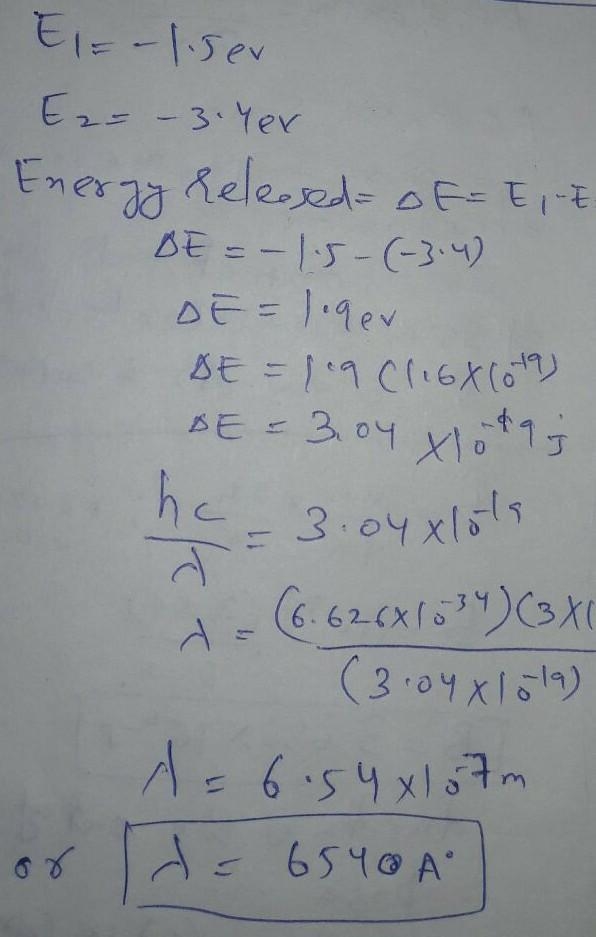 E₁ = -1.5ev
E₂ = -3.4ev
Energy Released = ΔE = E₁-E
ΔE = -1.5-(-3.4)
ΔE = 1.9ev
ΔE = 1.9 (1.6×10⁻¹⁹)
ΔE = 3.04 ×10⁻¹⁹ j
hc/λ = 3.04×10⁻¹⁹
λ = (6.626×10⁻³⁴)(3×1
(3.04×10⁻¹⁹)
λ = 6.54×10⁻⁷m
or λ = 6540 A°